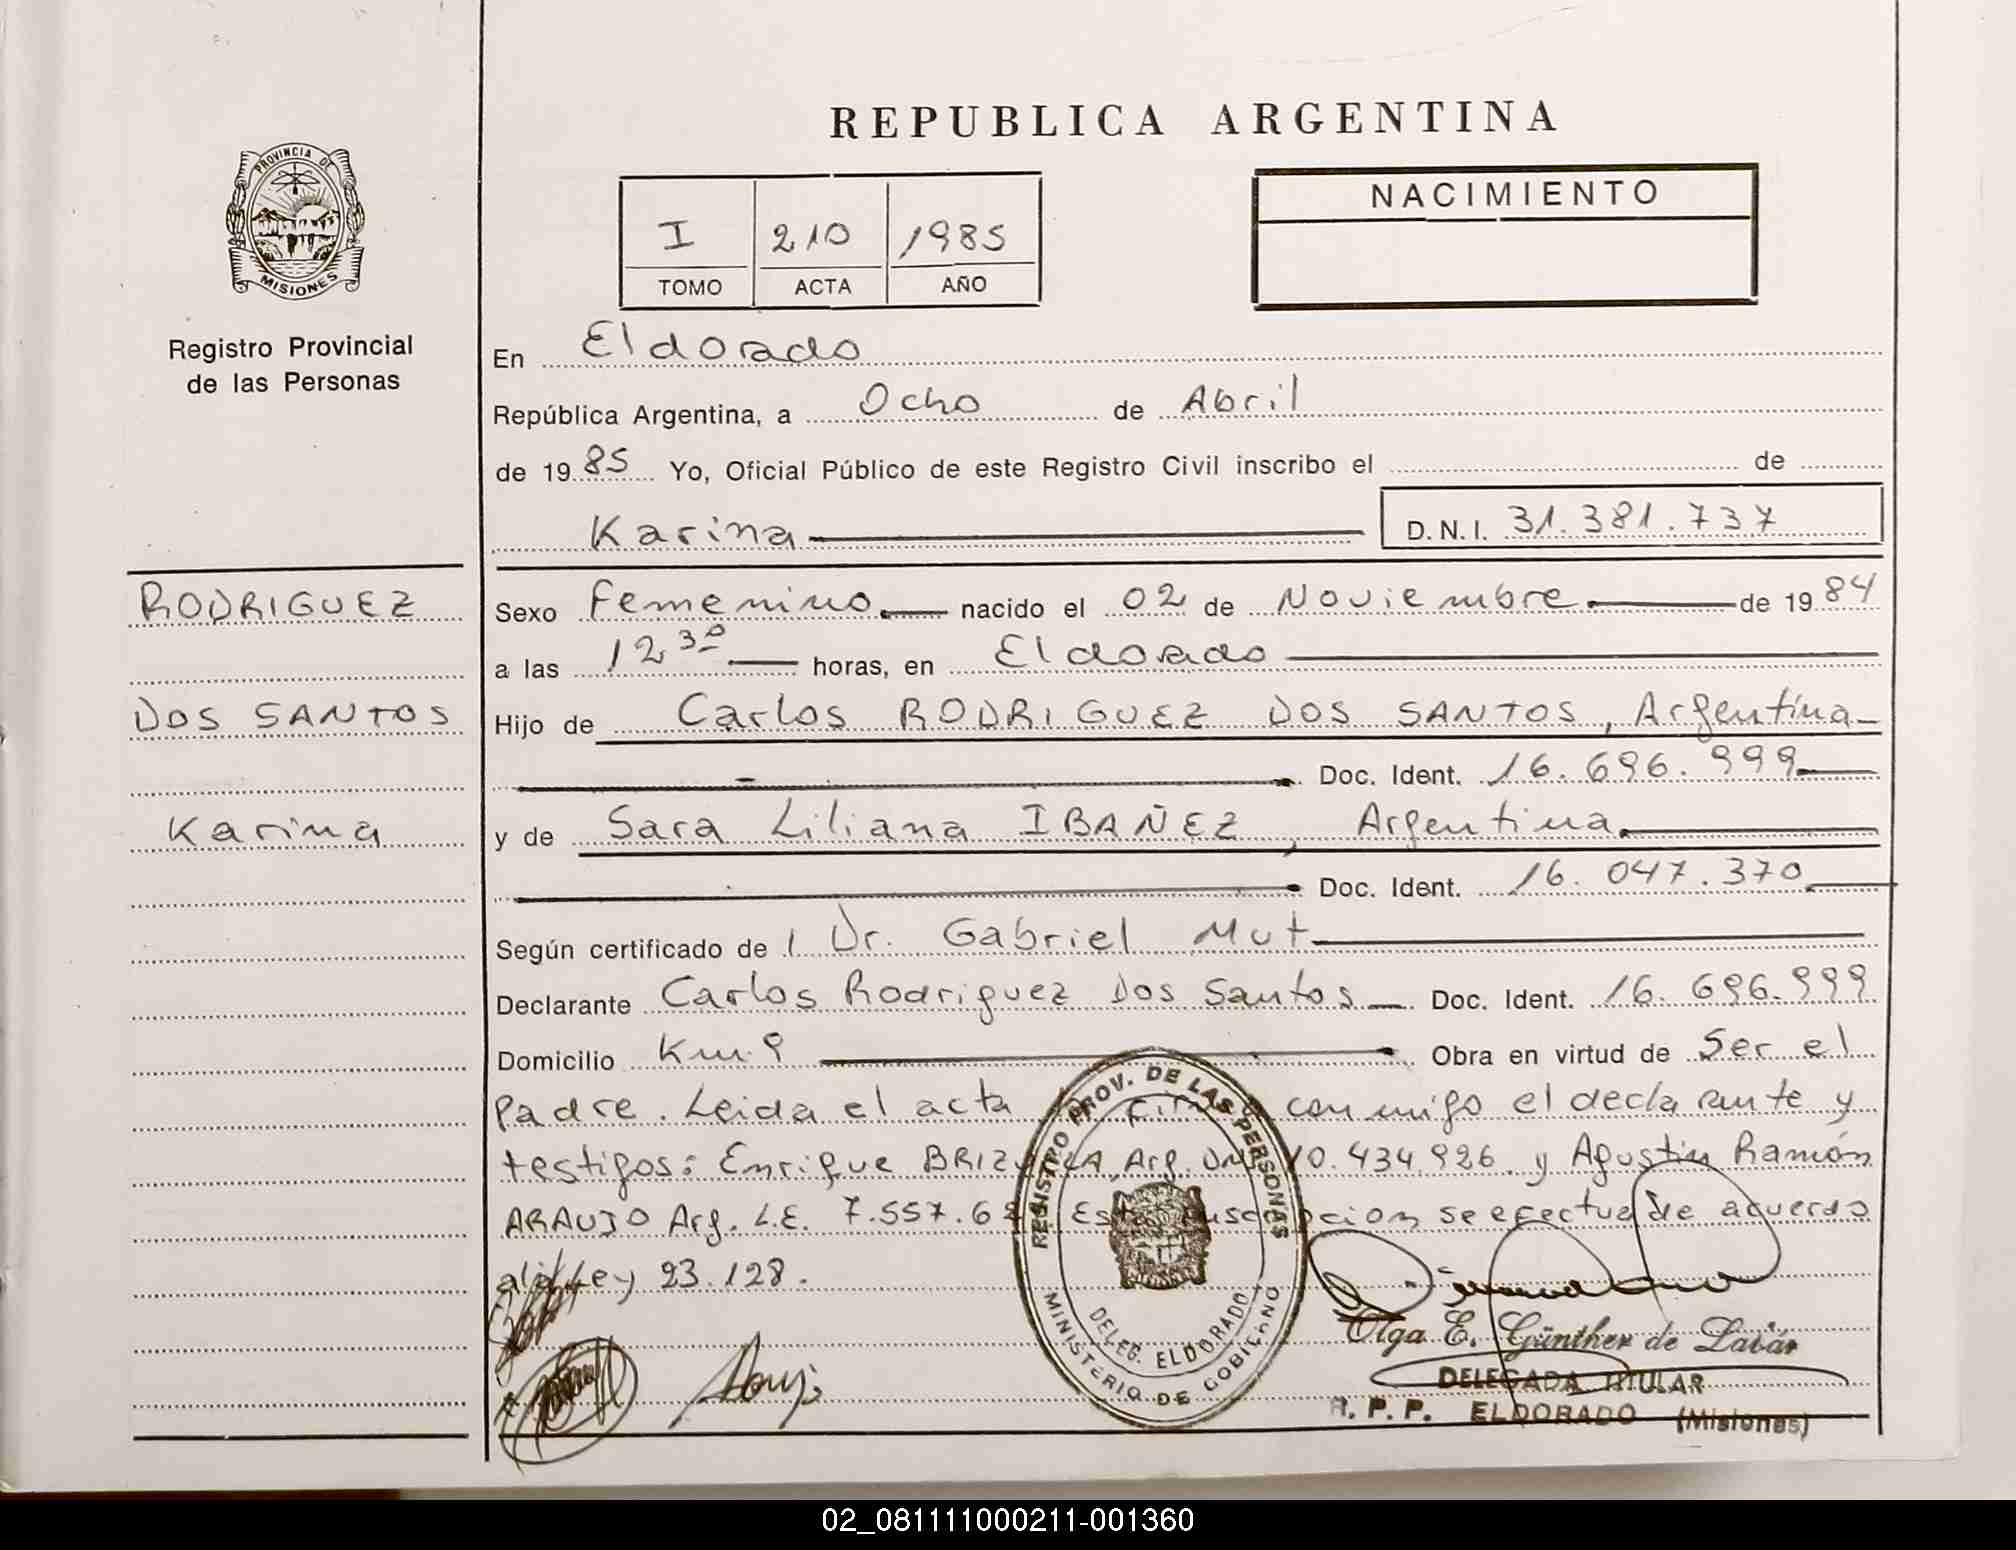 REPUBLICA ARGENTINA
PROVINCIA DE
MISIONES
Registro Provincial
de las Personas
I 210 1985
TOMO ACTA AÑO
NACIMIENTO
En Eldorado
República Argentina, a Ocho de Abril
de 1985 Yo, Oficial Público de este Registro Civil inscribo el de
Karina D.N.I. 31.381.737
RODRIGUEZ
DOS SANTOS
Karina
Sexo Femenino nacido el 02 de Noviembre de 1984
a las 12 30 horas, en Eldorado
Hijo de Carlos RODRIGUEZ DOS SANTOS, Argentina
Doc. Ident. 16.696.999
y de Sara Liliana IBAÑEZ, Argentina
Doc. Ident. 16.047.370
Según certificado de l Dr. Gabriel Mut
Declarante Carlos Rodriguez Dos Santos Doc. Ident. 16.696.999
Domicilio Km 9 Obra en virtud de Ser el
padre. Leida el acta conmigo el declarante y
testigos: Enrique Arg. 10.434.926 y Agustin Ramón
ARAUJO Arg. L.E. 7.557.6 Esta se efectua de acuerdo
a la Ley 23.128.
REGISTRO PROV. DE LAS PERSONAS
DELEG. ELDORADO
MINISTERIO DE GOBIERNO
Olga E. Günther de
DELEGADA TITULAR
R. P. P. ELDORADO (Misiones)
02_081111000211-001360